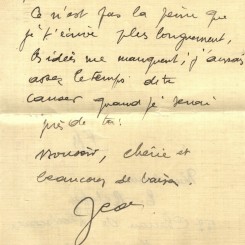 Ce n'est pas la peine que
je t'écrive plus longuement,
les idées me manquent; j'aurais
assez le temps de te
causer quand je serai
près de toi.
Bonsoir, chérie et
beaucoup de baisers.
Jean